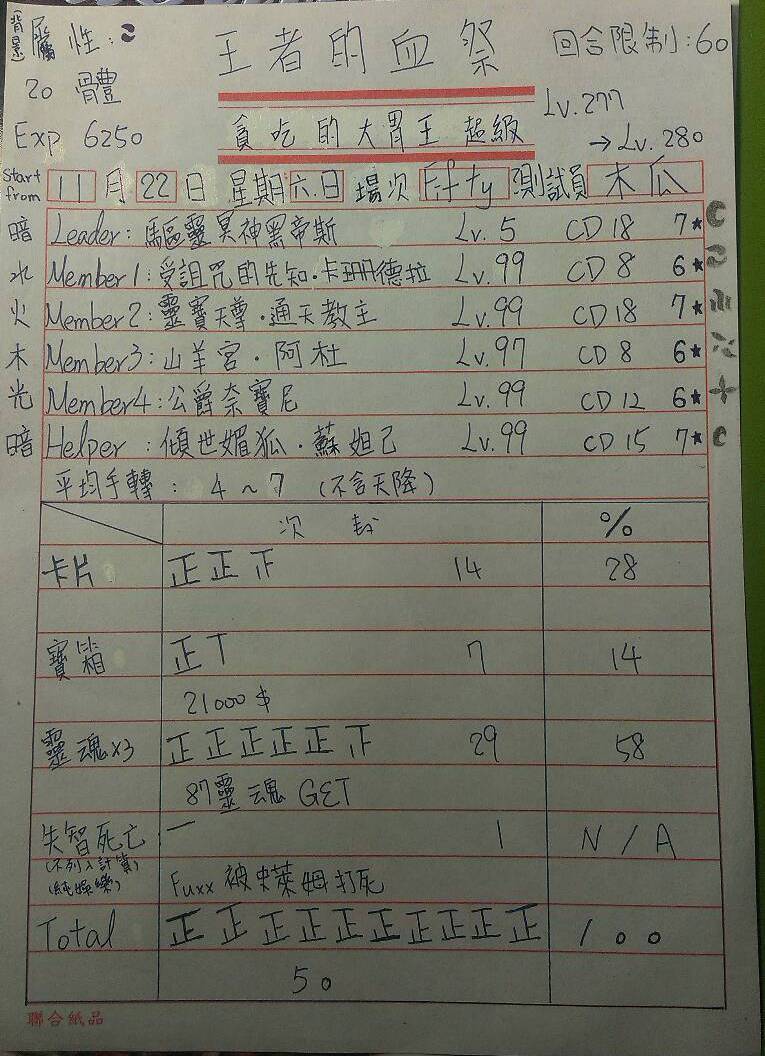 (背景)屬性: 王者的血祭 回合限制:60
20 體 Lv.277
Exp 6250 貪吃的大胃王 超級 → Lv.280
Start from 11月22日 星期六.日 場次 Fifty 測試員 木瓜
暗 Leader: 驅靈冥神黑帝斯 Lv.5 CD 18 7★
水 Member1: 受詛咒的先知·卡珊德拉 Lv.99 CD 8 6★
火 Member2: 靈寶天尊·通天教主 Lv.99 CD 18 7★
木 Member3: 山羊宮·阿杜 Lv.97 CD 8 6★
光 Member4: 公爵奈寶尼 Lv.99 CD 12 6★
暗 Helper: 傾世媚狐·蘇妲己 Lv.99 CD 15 7★
平均手轉: 4~7 (不含天降)
次數 %
卡片 正正正 14 28
寶箱 正T 7 14
21000$
靈魂x3 正正正正正正 29 58
87靈魂 GET
失智死亡 一 1 N/A
(不列入計算)
(純娛樂) Fuxx 被史萊姆打死
Total 正正正正正正正正正正 100
50
聯合紙品